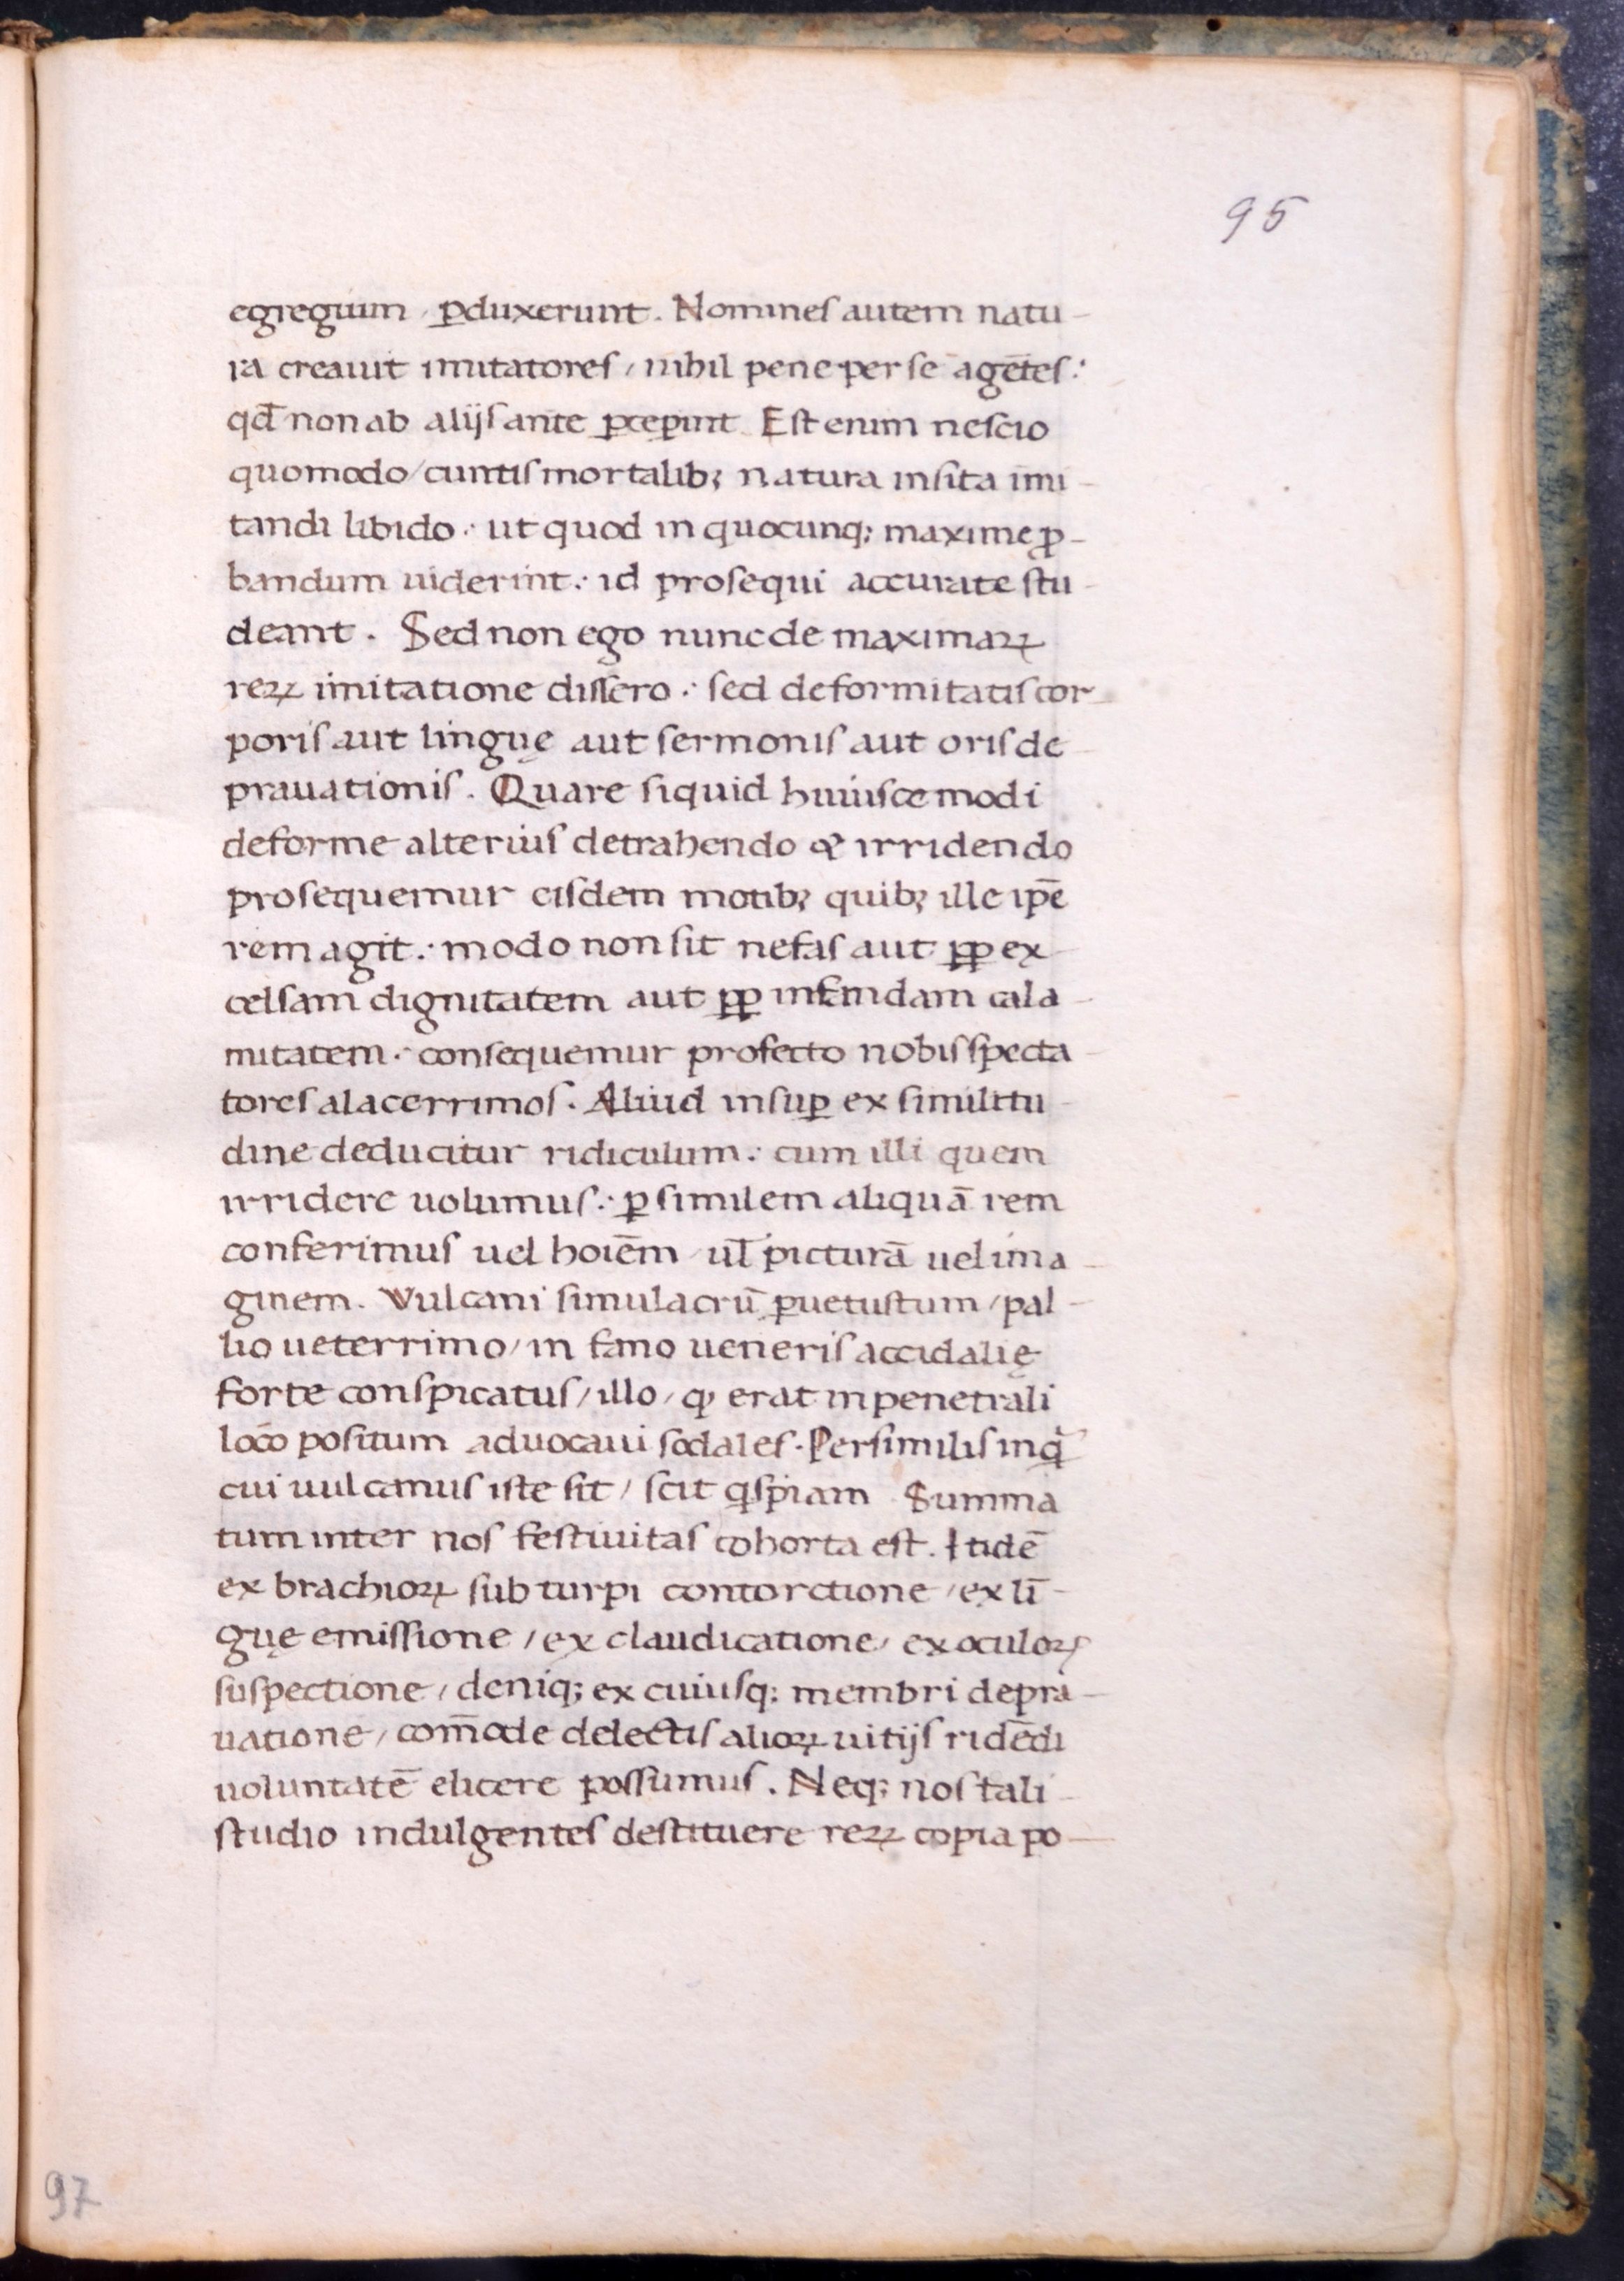 95
egregium / ꝑduxerunt. Nomines autem natu-
ra creauit imitatores / nihil pene per se agētes:
qđ non ab alijs ante ꝑceperint Est enim nescio
quomodo / cuntis mortalibꝫ natura insita imi-
tandi libido: ut quod in quocunqꝫ maxime ꝓ-
bandum uiderint: id prosequi accurate stu-
deant. Sed non ego nunc de maximaꝝ
reꝝ imitatione dissero: sed deformitatis cor-
poris aut linguę aut sermonis aut oris de
prauationis. Quare siquid huiuscemodi
deforme alterius detrahendo & irridendo
prosequemur eisdem motibꝫ quibꝫ ille ip̄e
rem agit: modo non sit nefas aut ꝓꝑ ex
celsam dignitatem aut ꝓꝑ infandam cala-
mitatem: consequemur profecto nobis specta-
tores alacerrimos. Aliud insuꝑ ex similitu-
dine deducitur ridiculum: cum illi quem
irridere uolumus: ꝑ similem aliquā rem
conferimus uel hoiēm / ul̄ picturā uel ima-
ginem. Vulcani simulacrū ꝑuetustum / pal-
lio ueterrimo / in fano ueneris accidalię
forte conspicatus / illo / ꝙ erat in penetrali
loco positum aduocaui sodales. Persimilis inq̄
cui uulcanus iste sit / scit qspiam Summa
tum inter nos festiuitas cohorta est. Itidē
ex brachioꝝ subturpi contorctione / ex lī-
guę emissione / ex claudicatione / ex oculoꝝ
suspectione / deniqꝫ ex cuiusqꝫ membri depra-
uatione / com̄ode delectis alioꝝ uitijs ridēdi
uoluntatē elicere possumus. Neqꝫ nos tali
studio indulgentes destituere reꝝ copia po-
97